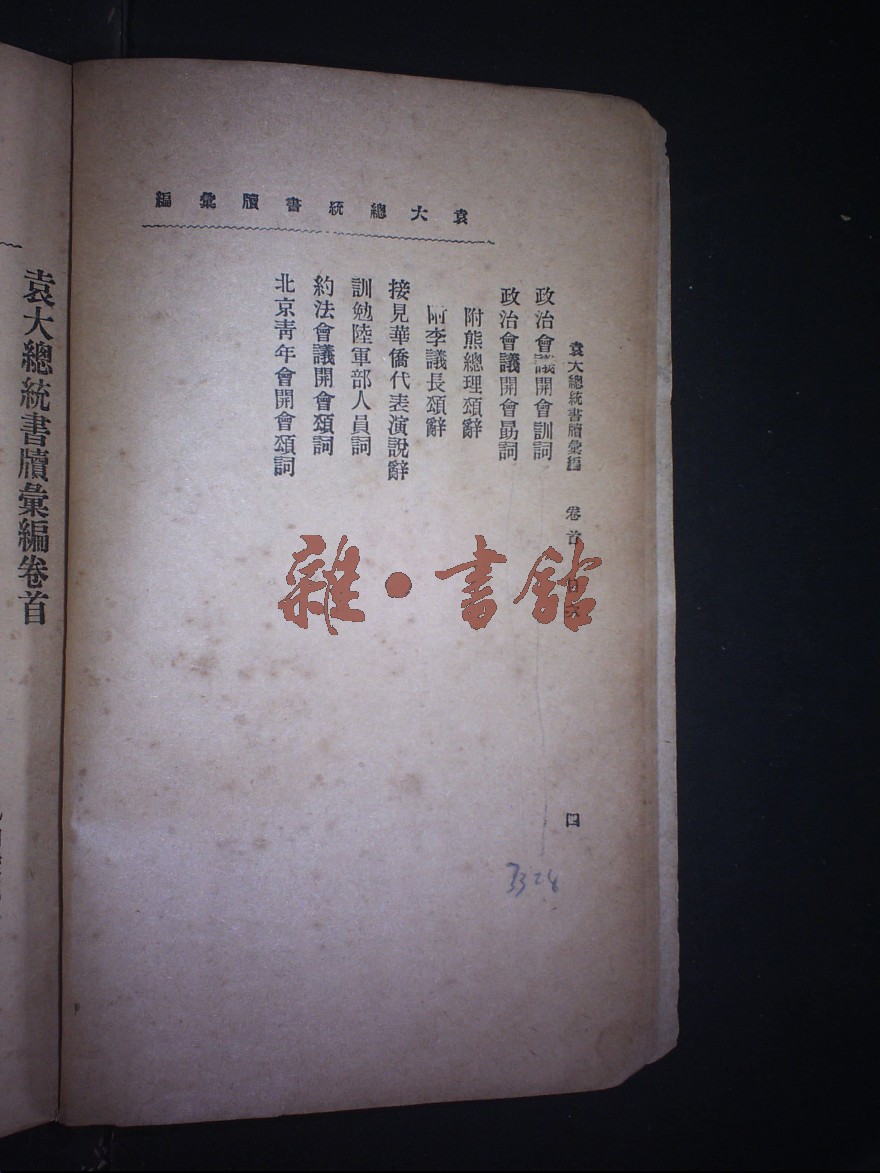 袁大總統書牘彙編
袁大總統書牘彙編 卷首 目 四
政治會議開會訓詞
政治會議開會勗詞
附熊總理頌辭
附李議長頌辭
接見華僑代表演說辭
訓勉陸軍部人員詞
約法會議開會頌詞
北京青年會開會頌詞
雜·書館
3328
袁大總統書牘彙編卷首